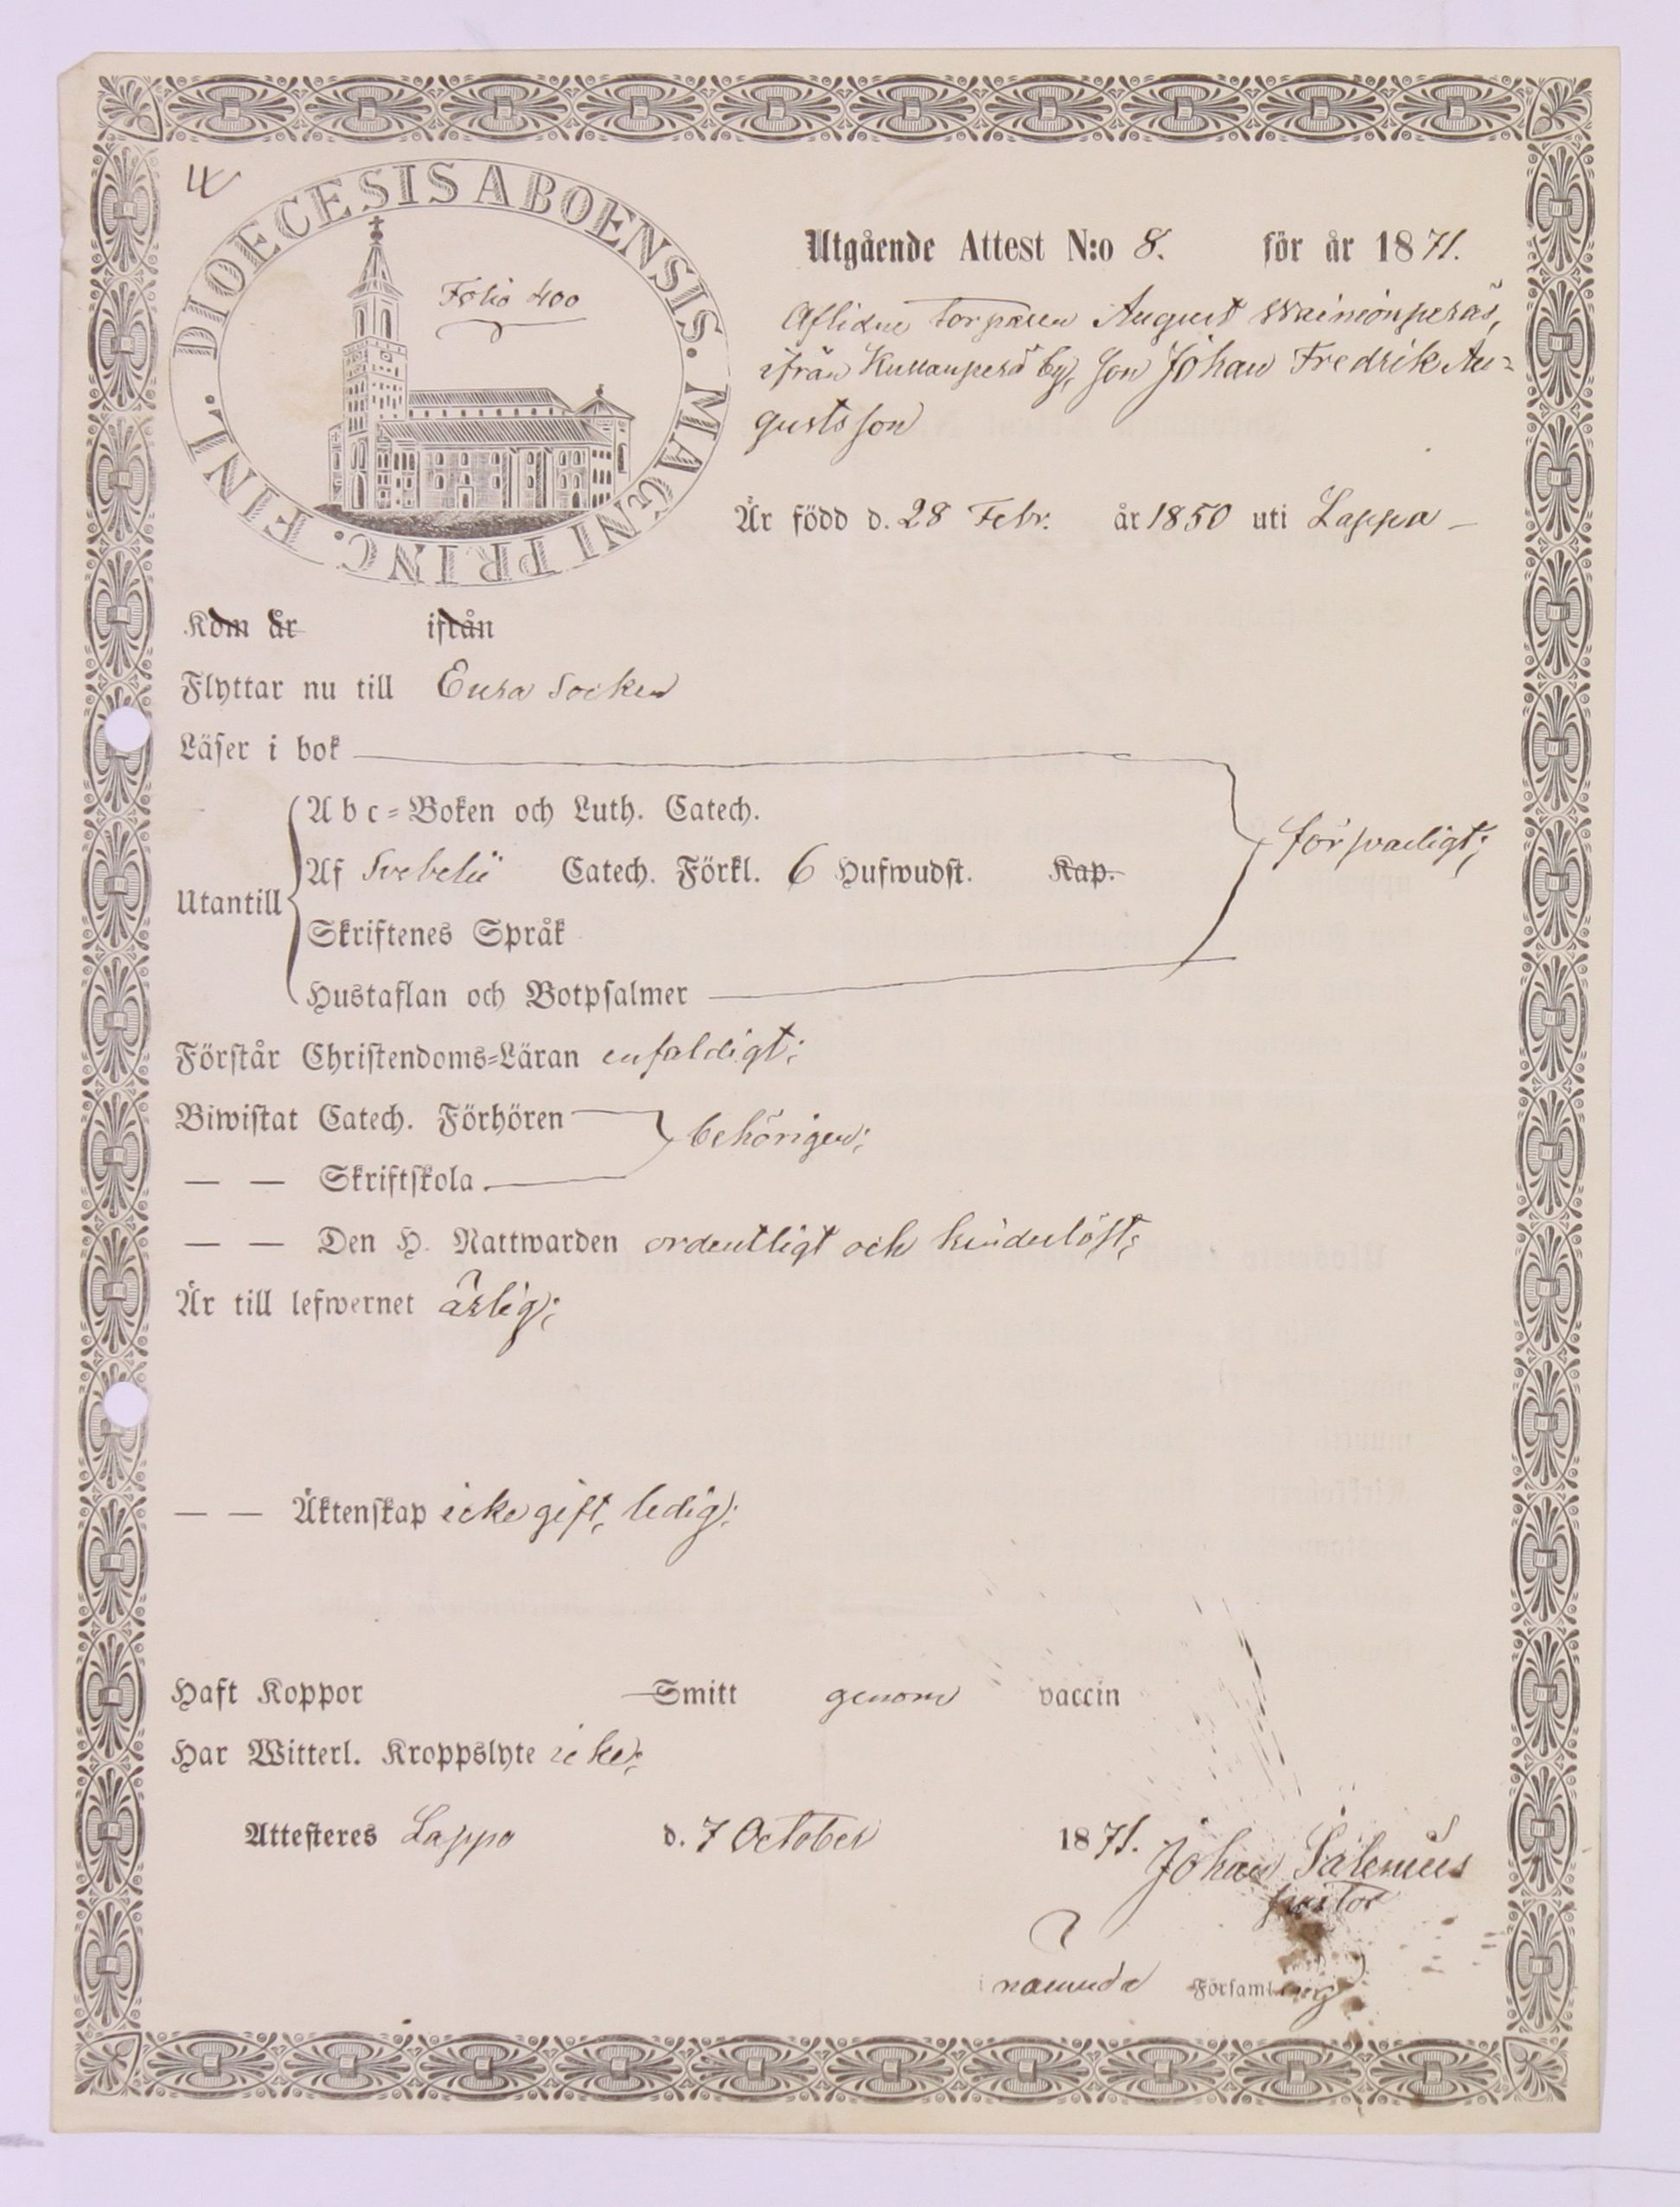 4
DIOECESIS ABOENSIS. MAGNI PRINC. FINL.
Folio 400
Utgående Attest N:o 8. för år 1871.
Aflidne torparen August Wäinionperäs,
ifrån Kullanperä by, son Johan Fredrik Au=
gustsson
Är född d. 28 Febr. år 1850 uti Lappo
Kom år ifrån
Flyttar nu till Eura Socken
Läser i bok
Abc=Boken och Luth. Catech.
försvarligt;
Utantill Af Svebelii Catech. Förkl. 6 Hufwudst. Kap.
Skriftenes Språk
Hustaflan och Botpsalmer
Förstår Christendoms=Läran enfaldigt;
Biwistat Catech. Förhören
behörigen;
— — Skriftskola
— — Den H. Nattwarden ordentligt och hinderlöst;
Är till lefwernet ärlig;
— — Äktenskap icke gift, ledig;
Haft Koppor Smitt genom vaccin
Har Witterl. Kroppslyte icke;
Attesteres Lappo d. 7 October 1871.
Johan Salenius
pastor
i nämnda Församling